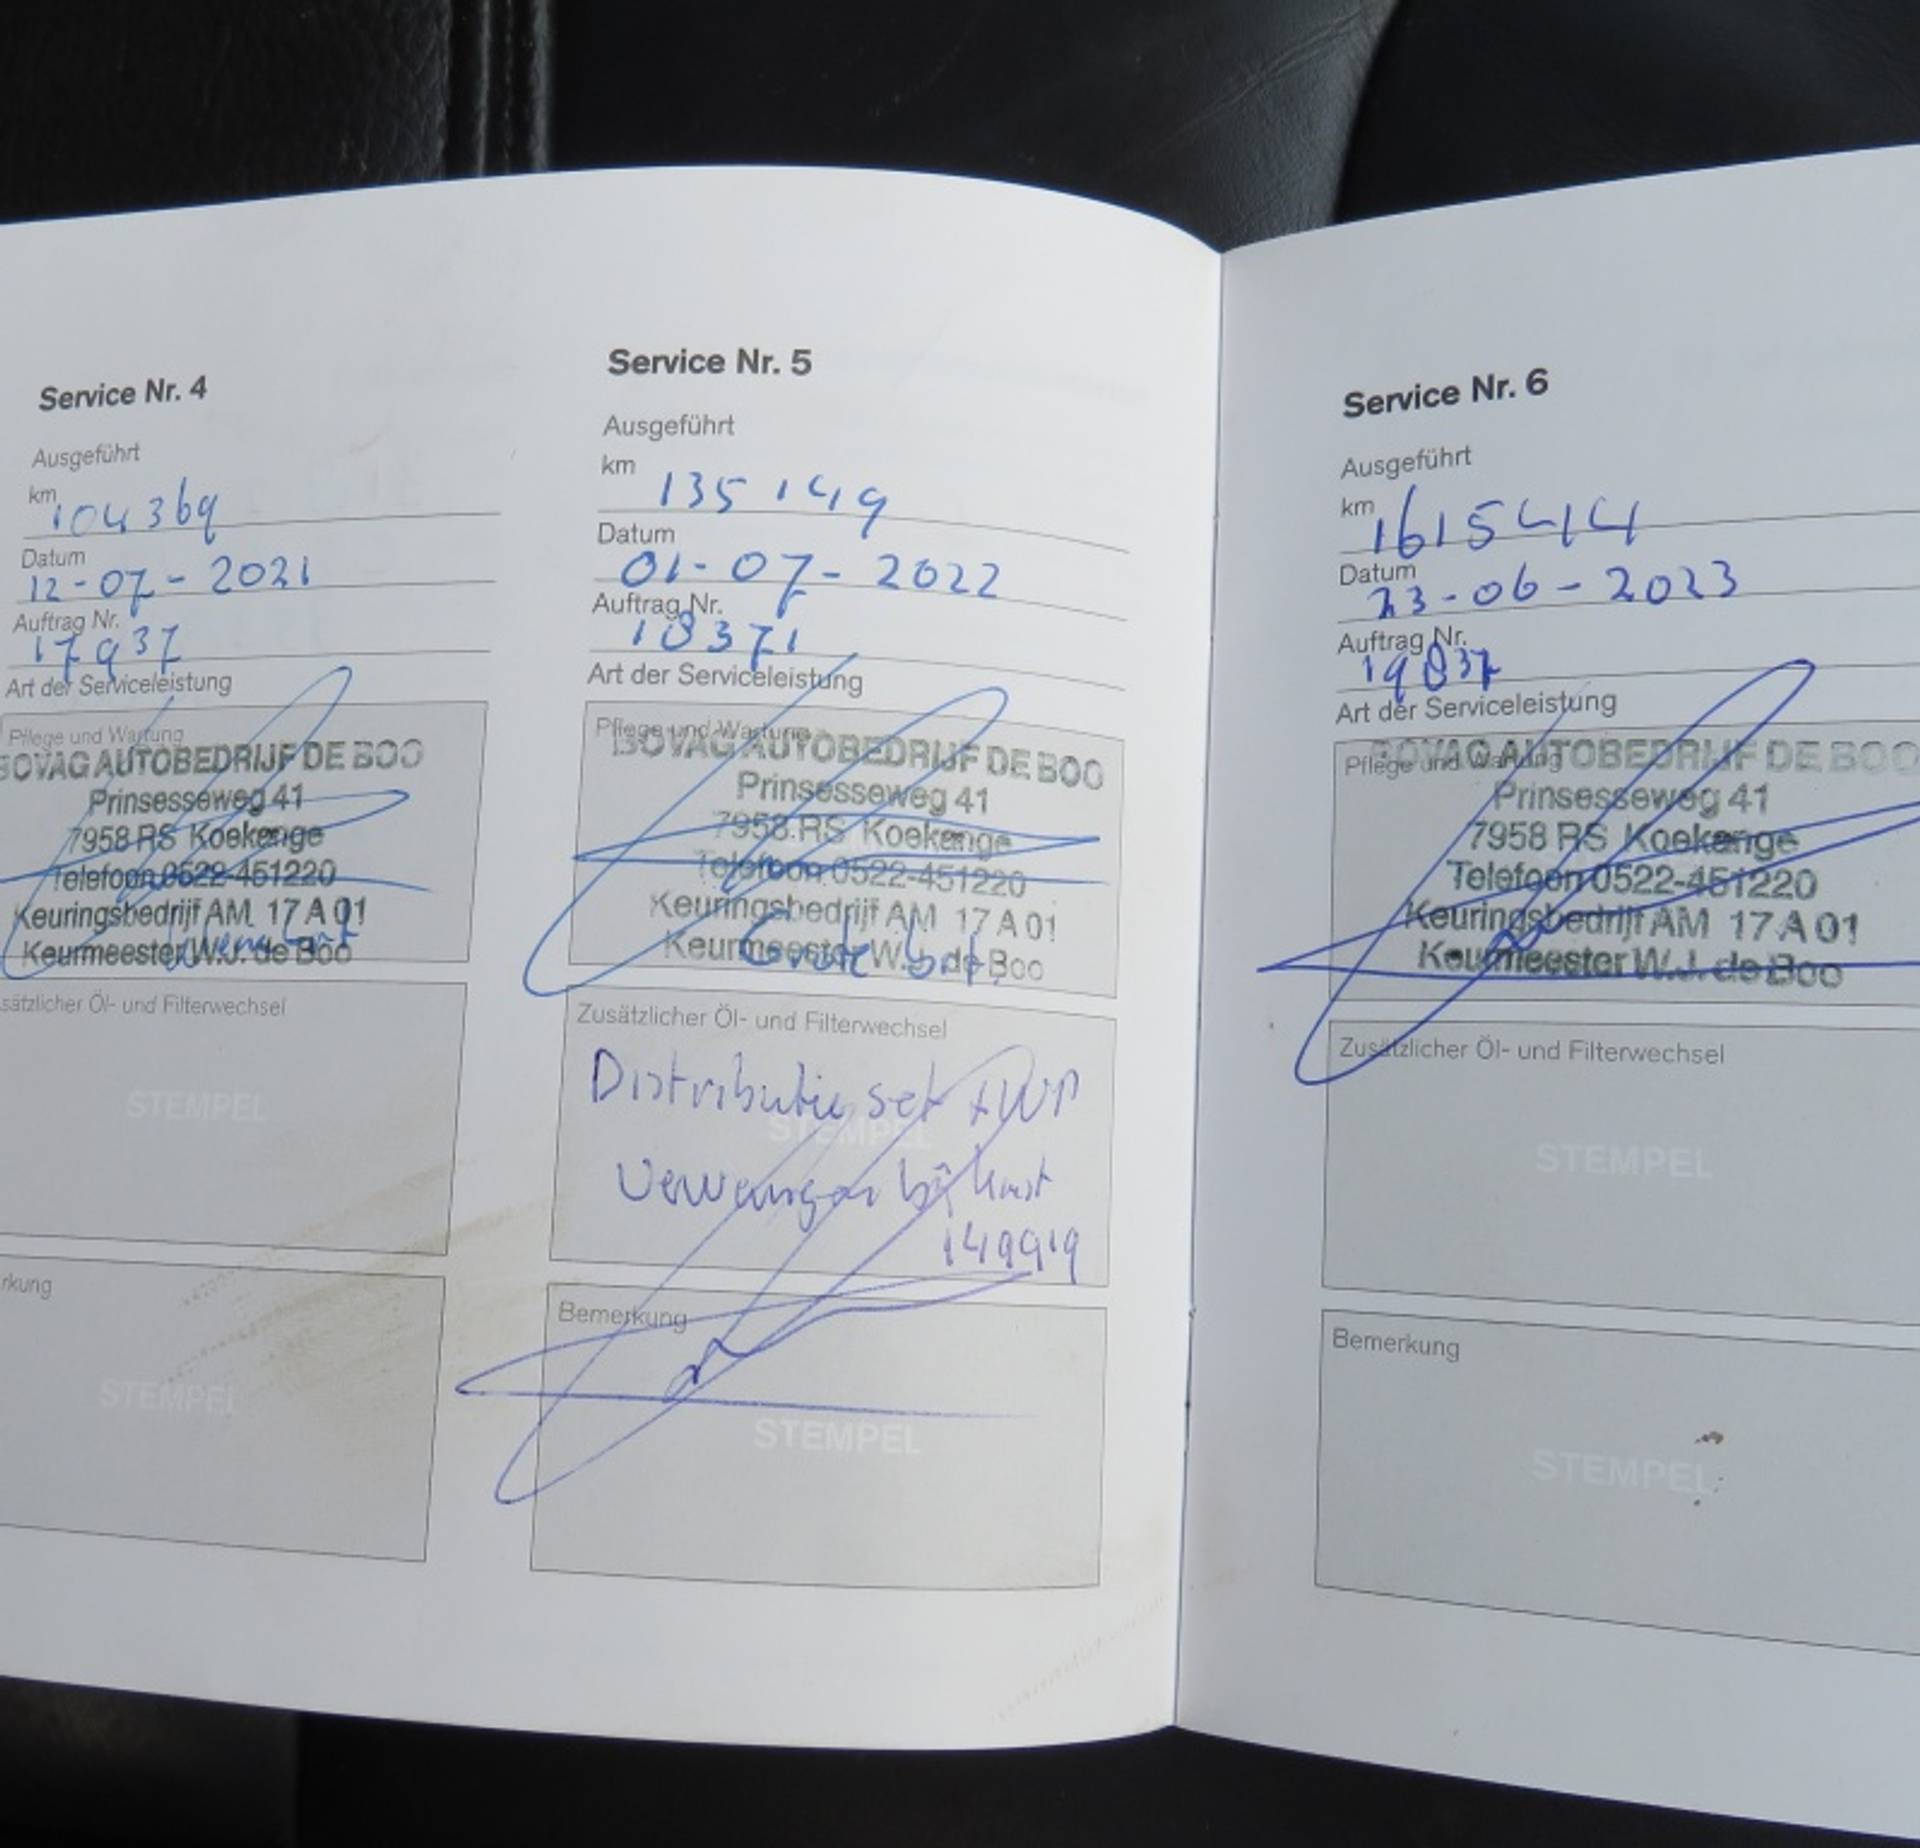 Service Nr. 4
Ausgeführt
km 104369
Datum
12-07-2021
Auftrag Nr.
17937
Art der Serviceleistung
Pflege und Wartung
BOVAG AUTOBEDRIJF DE BOO
Prinsesseweg 41
7958 RS Koekange
Telefoon 0522-451220
Keuringsbedrijf AM 17 A 01
Keurmeester W.J. de Boo
sätzlicher Öl- und Filterwechsel
STEMPEL
rkung
STEMPEL
Service Nr. 5
Ausgeführt
km 135149
Datum
01-07-2022
Auftrag Nr.
18371
Art der Serviceleistung
Pflege und Wartung
BOVAG AUTOBEDRIJF DE BOO
Prinsesseweg 41
7958 RS Koekange
Telefoon 0522-451220
Keuringsbedrijf AM 17 A 01
Keurmeester W.J. de Boo
Grote
Zusätzlicher Öl- und Filterwechsel
Distributie set + WP
STEMPEL
Vervangen bij kmst
149919
Bemerkung
STEMPEL
Service Nr. 6
Ausgeführt
km 161544
Datum
23-06-2023
Auftrag Nr.
19837
Art der Serviceleistung
Pflege und Wartung
BOVAG AUTOBEDRIJF DE BOO
Prinsesseweg 41
7958 RS Koekange
Telefoon 0522-451220
Keuringsbedrijf AM 17 A 01
Keurmeester W.J. de Boo
Zusätzlicher Öl- und Filterwechsel
STEMPEL
Bemerkung
STEMPEL